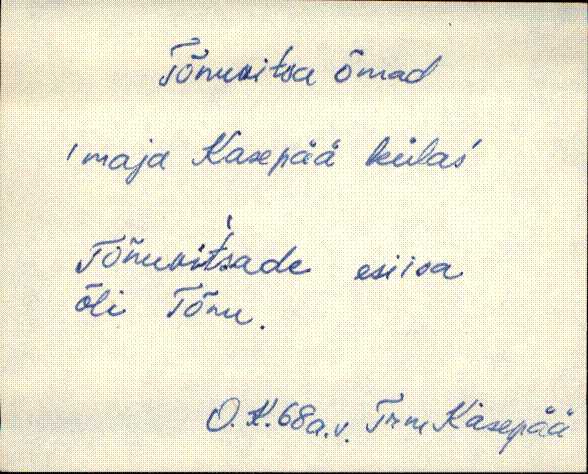 Tõnuvitsa õmad
'maja Kasepää külas'
Tõnuvitsade esiisa
õli Tõnu.
O. K. 68 a. v. Trm Kasepää